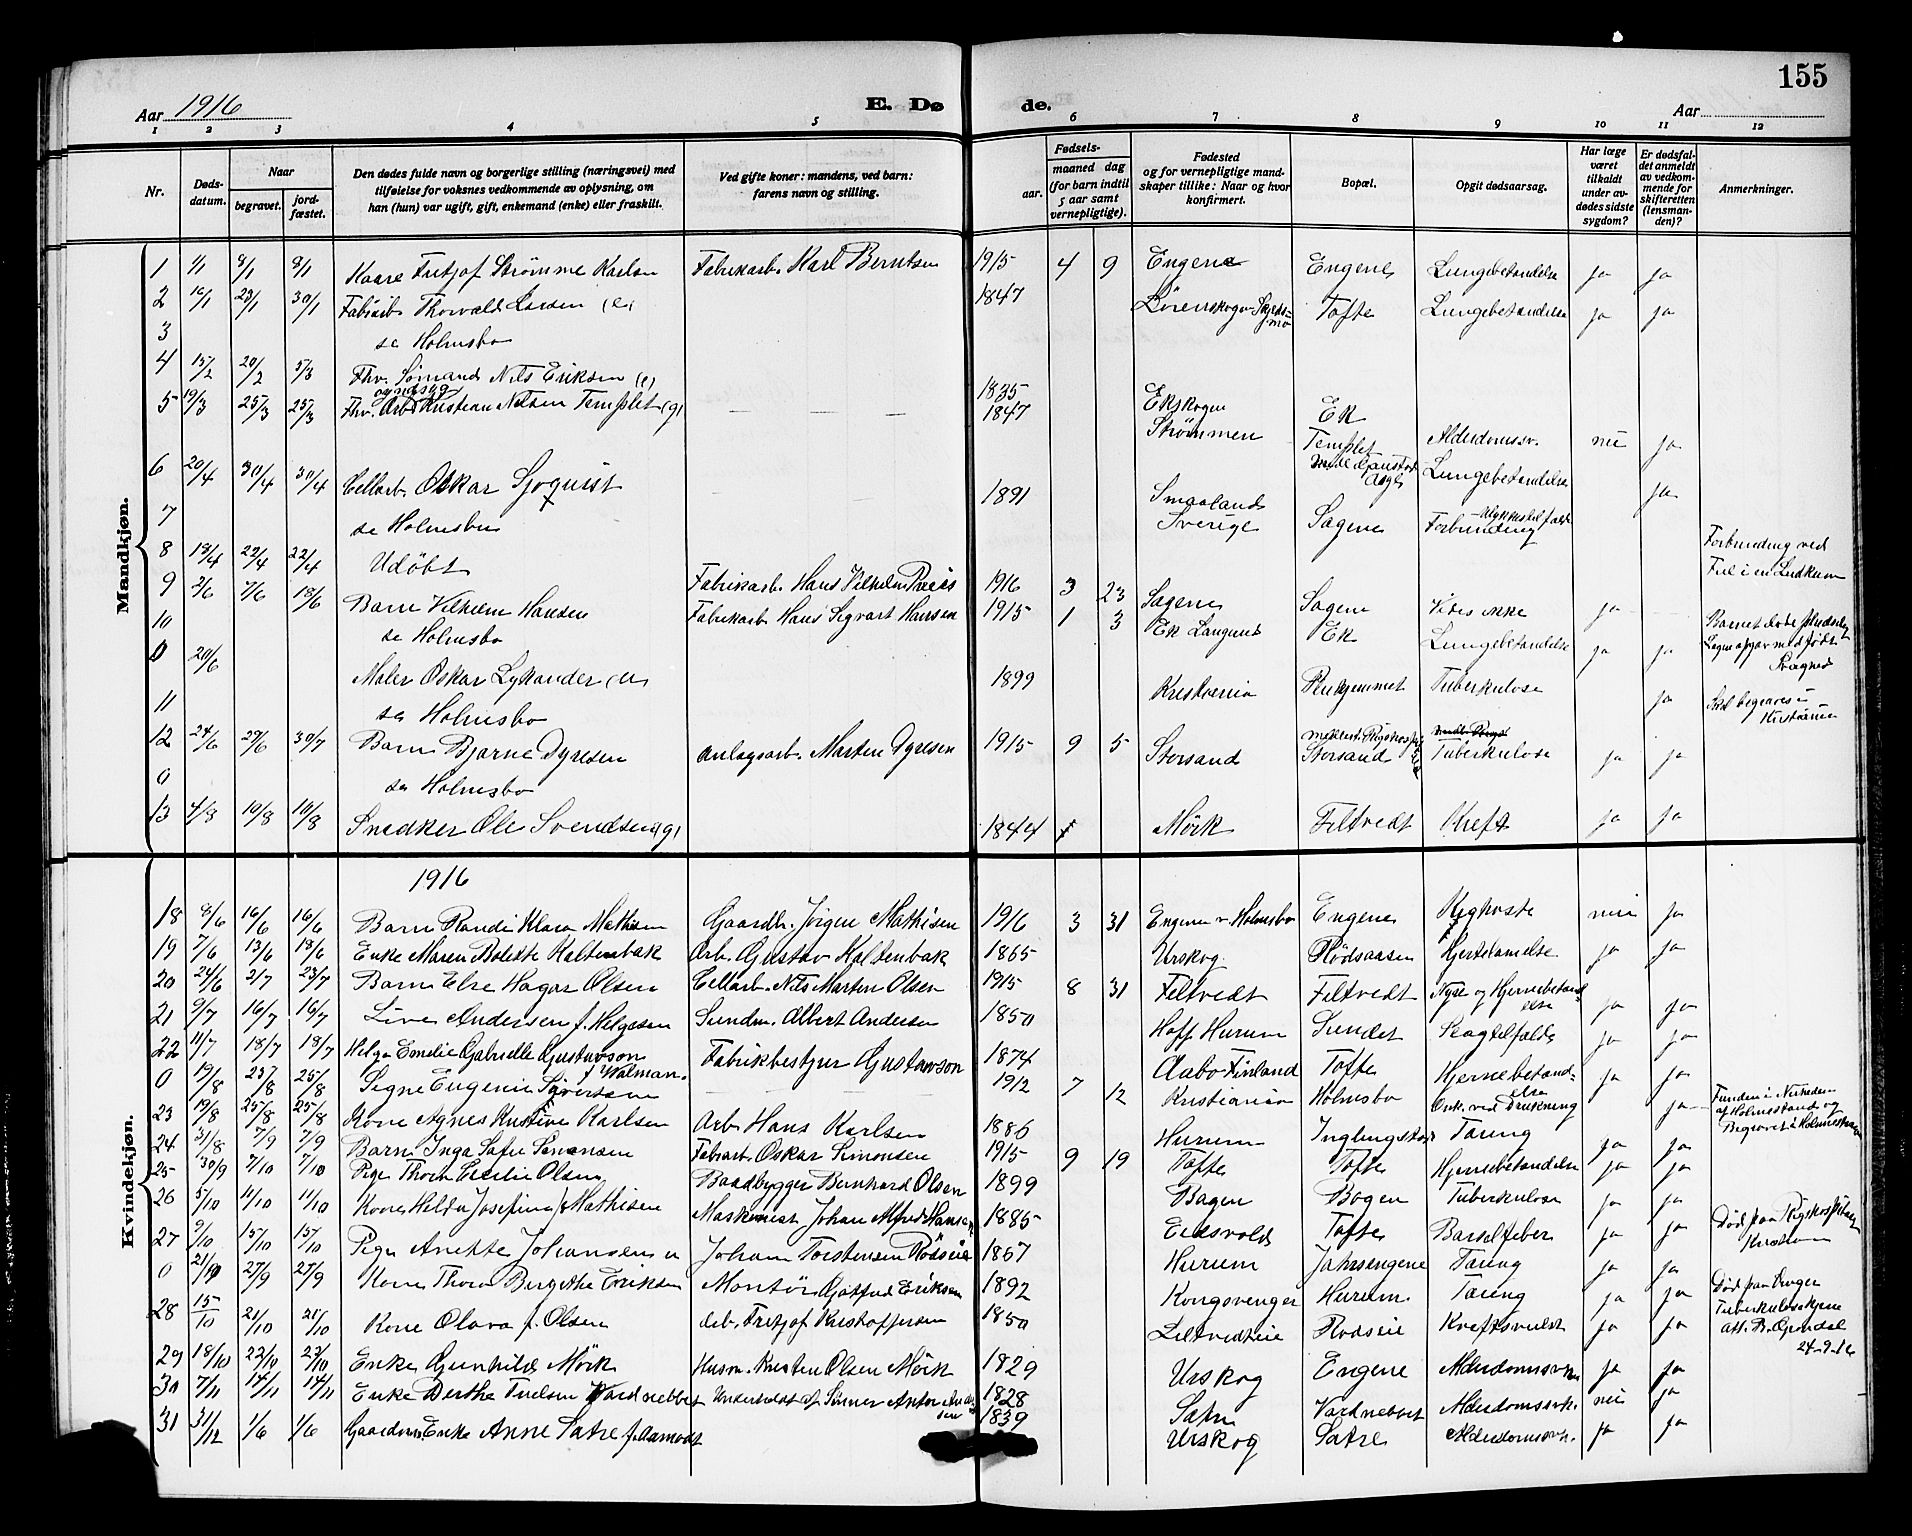 155
Aar 1916
E. Dø
de.
Aar
1 2 3 4 5 6 7 8 9 10 11 12
Nr.
Døds-
datum.
Naar
begravet.
jord-
fæstet.
Den dødes fulde navn og borgerlige stilling (næringsvei) med
tilføielse for voksnes vedkommende av oplysning, om
han (hun) var ugift, gift, enkemand (enke) eller fraskilt.
Ved gifte koner: mandens, ved barn:
farens navn og stilling.
Fødsels-
aar.
maaned dag
(for barn indtil
5 aar samt
vernepligtige).
Fødested
og for vernepligtige mand-
skaper tillike: Naar og hvor
konfirmert.
Bopæl.
Opgit dødsaarsag.
Har læge
været
tilkaldt
under av-
dødes sidste
sygdom?
Er dødsfal-
det anmeldt
av vedkom-
mende for
skifteretten
(lensman-
den)?
Anmerkninger.
Mandkjøn.
1 1/1 8/1 8/1 Kaare Fritjof Strømme Karlsen Fabrikarb. Karl Berntsen 1915 4 9 Engene Engene Lungebetændelse ja ja
2 16/1 23/1 30/1 Fabrikarb. Thorvald Larsen (e) 1847 Lörenskogen Skjeds-
mo Tofte Lungebetændelse ja ja
3 se Holmsbo
4 15/2 20/2 5/3 Fhv. Sømand Nils Eriksen (e) 1835 Ekskogen Ek Alderdomssv. nei ja
5 19/3 25/3 25/3 Fhv. Arb. Kristian Nilsen Templet (g) 1847 Strømmen Templet Lungebetændelse ja
6 20/4 30/4 30/4 Cellarb. Oskar Sjoquist 1891 Smaaland
Sverige Sagene Ulykkestilfælde
Forbrænding Forbrænding ved
7 se Holmsbu
8 18/4 22/4 22/4 Udöbt Fabrikarb. Hans Vilhelm 1916 3 23 Sagene Sagene Vides ikke ja
9 2/6 7/6 18/6 Barn Vilhelm Hansen Fabrikarb. Hans Sigvart Hansen 1915 1 3 Ek Ek Lungebetændelse ja ja
10 se Holmsbo
0 20/6 Maler Oskar Lykander (u) 1899 Kristiania Tuberkulose ja Skal begraves i
Kristiania
11 se Holmsbo
12 24/6 29/6 30/7 Barn Bjarne Dyresen Anlægsarb. Marten Dyresen 1915 9 5 Storsand Storsand Tuberkulose ja ja
0 se Holmsbo
13 4/8 10/8 10/8 Snedker Ole Svendsen (g) 1844 Mörk Filtvedt Kreft ja ja
Kvindekjøn.
1916
18 8/6 16/6 16/6 Barn Randi Klara Mathisen Gaardbr. Jörgen Mathisen 1916 3 31 Engene v. Holmsbo Engene Kighoste nei ja
19 7/6 13/6 18/6 Enke Maren Bolette Kaltenbak Arb. Gustav Kaltenbak 1865 Urskog Rödsaasen Hjertelamelse ja ja
20 24/6 2/7 23/7 Barn Else Hagar Olsen Cellarb. Nils Marten Olsen 1915 8 31 Filtvedt Filtvedt Nyre og Hjernebetænd-
else ja ja
21 9/7 16/7 16/7 Live Andersen f. Helgesen Sundm. Albert Andersen 1850 Hoff Hurum Sundet Slagtilfælde ja ja
22 11/7 18/7 18/7 Helga Emelie Gabrielle Gustavson
f. Walman. Fabrikbestyrer Gustavson 1874 Aabo Finland Tofte Hjernebetænd-
else ja ja
0 19/8 25/8 25/8 Signe Eugenie Sivertsen 1912 7 12 Kristiania Holmsbo Omk. ved Drukning ja Funden i Nærheden
af Holmestrand og
Begravet i Holmestrand
23 19/8 25/8 25/8 Kone Agnes Kristine Karlsen Arb. Hans Karlsen 1886 Hurum Tæring ja ja
24 31/8 7/9 7/9 Barn Inga Sofie Simonsen Fabrikarb. Oskar Simonsen 1915 9 19 Tofte Tofte Hjernebetændelse ja ja
25 30/9 7/10 7/10 Pige Thora Cecilie Olsen Baadbygger Bernhard Olsen 1899 Bogen Bogen Tuberkulose ja ja
26 5/10 11/10 11/10 Kone Hilda Josefine f. Mathisen Maskinist Johan Alfred Hansen 1885 Eidsvold Tofte Barselfeber ja ja Död paa Rigshospitalet
Kristiania
27 9/10 15/10 15/10 Pige Anette Johansen u Johan Torstensen Rödseie 1867 Hurum Jahrsengene Tæring ja ja
0 21/10 27/9 27/9 Kone Thora Bergithe Eriksen Montör Gotfred Eriksen 1892 Kongsvinger Hurum. Tæring ja ja Död paa
Tuberkulosehjem
att.
24-9-16
28 15/10 21/10 21/10 Kone Olava f. Olsen Arb. Fritjof Kristoffersen 1850 Filtvedteie Rödseie Kreftsvulst ja ja
29 18/10 22/10 22/10 Enke Gunhild Mörk Husm. Kristen Olsen Mörk 1829 Urskog Engene Alderdomssvk. ja ja
30 7/11 14/11 14/11 Enke Berthe Nielsen Vardnebbet Understöttet af Sönnen Anton 1828 Sætre Vardnebbet Alderdomssvk. nei ja
31 31/12 1/6 1/6 Gaardm. Enke Anne Sætre f. Aamodt 1839 Urskog Sætre Alderdomssvk. ja ja